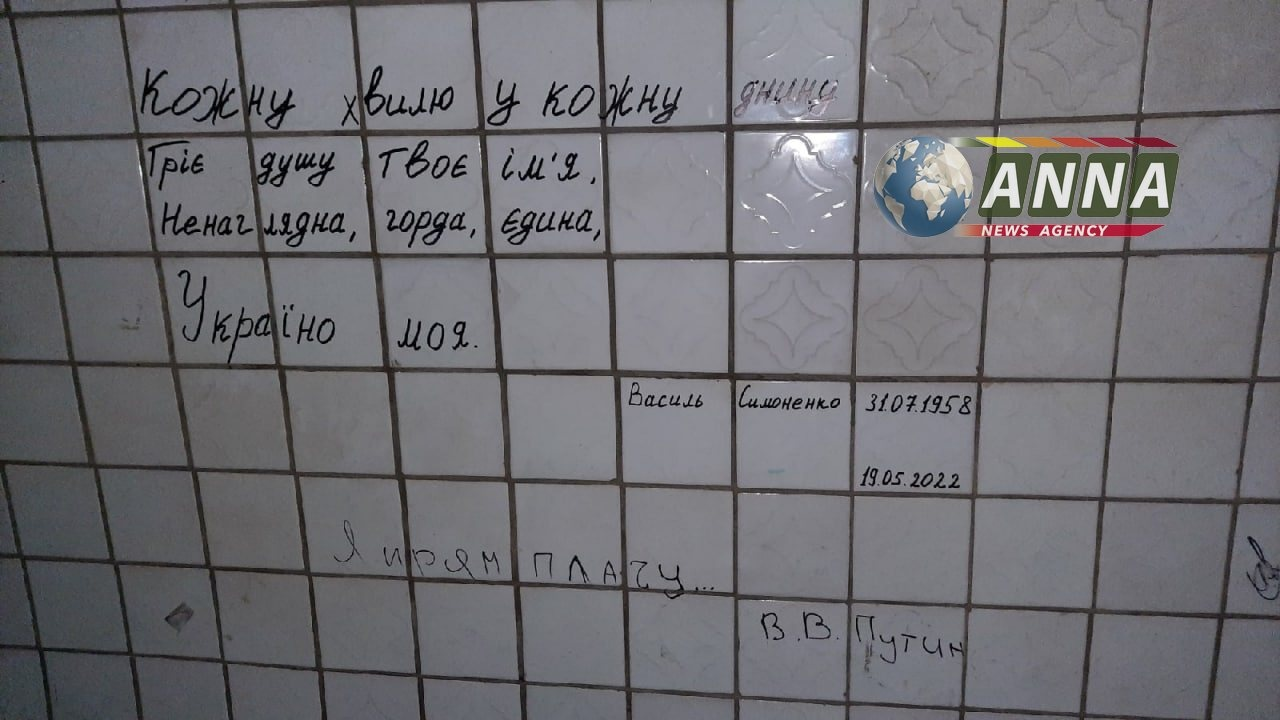 Кожну хвилю у кожну днину
Гріє душу твоє ім'я,
Ненаглядна, горда, єдина,
Україно моя.
Василь Симоненко 31.07.1958
19.05.2022
Я прям плачу...
В.В. Путин
ANNA
NEWS AGENCY